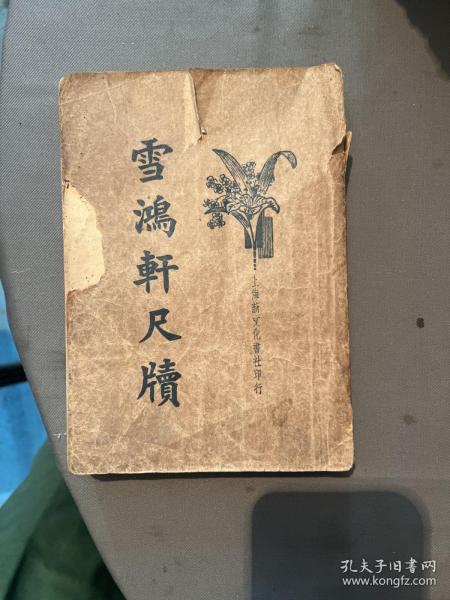 雪鴻軒尺牘
上海新文化書社印行
孔夫子旧书网
www.kongfz.com